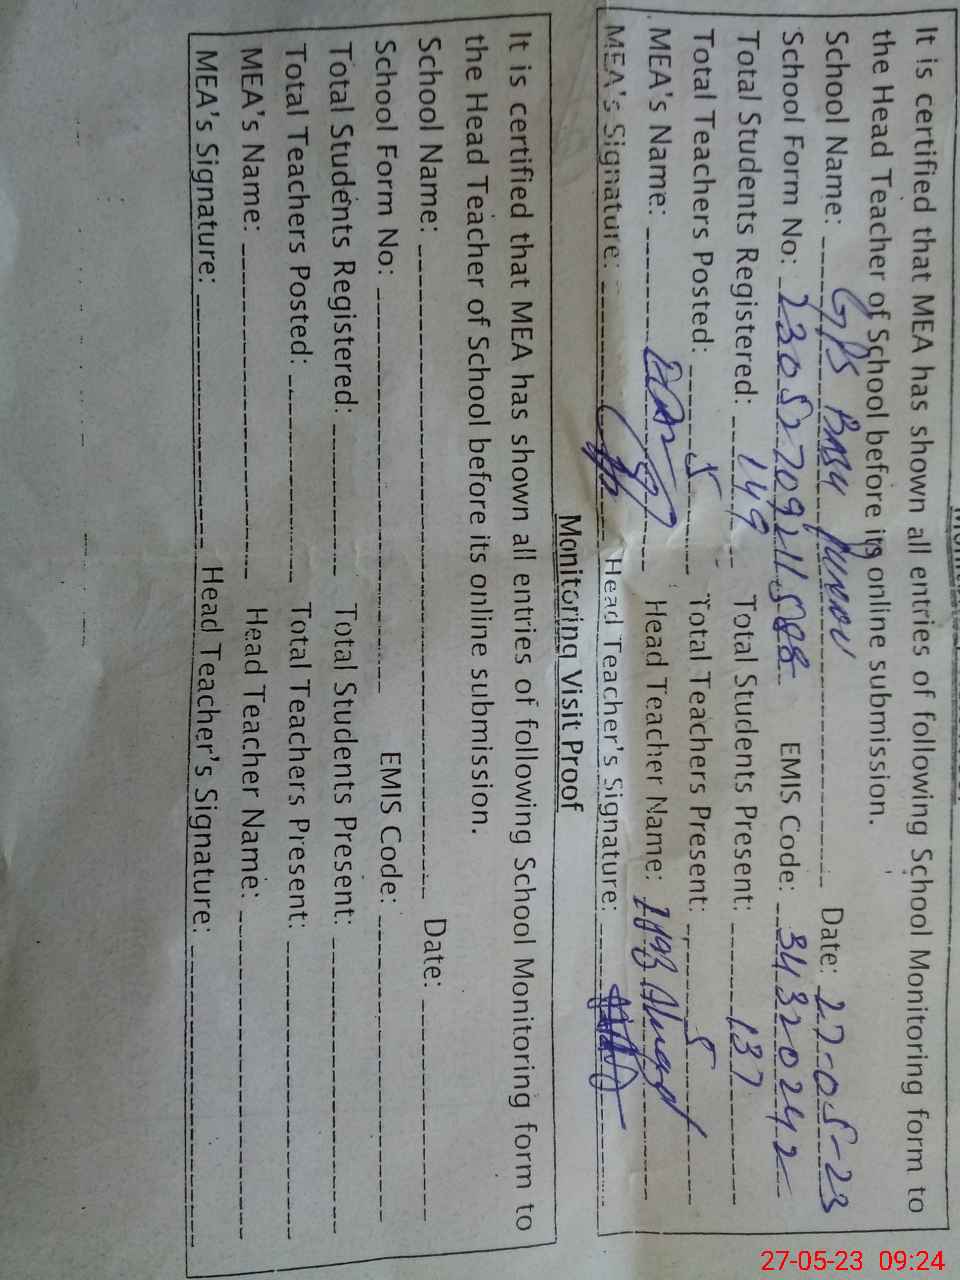 It is certified that MEA has shown all entries of following School Monitoring form to
the Head Teacher of School before its online submission.
School Name: GPS Basti Date: 27-05-23
School Form No: EMIS Code: 34320242
Total Students Registered: 149 Total Students Present: 137
Total Teachers Posted: 5 Total Teachers Present: 5
MEA's Name: Head Teacher Name: Ahmad
MEA's Signature: Head Teacher's Signature:
Monitoring Visit Proof
It is certified that MEA has shown all entries of following School Monitoring form to
the Head Teacher of School before its online submission.
School Name: Date:
School Form No: EMIS Code:
Total Students Registered: Total Students Present:
Total Teachers Posted: Total Teachers Present:
MEA's Name: Head Teacher Name:
MEA's Signature: Head Teacher's Signature:
27-05-23 09:24